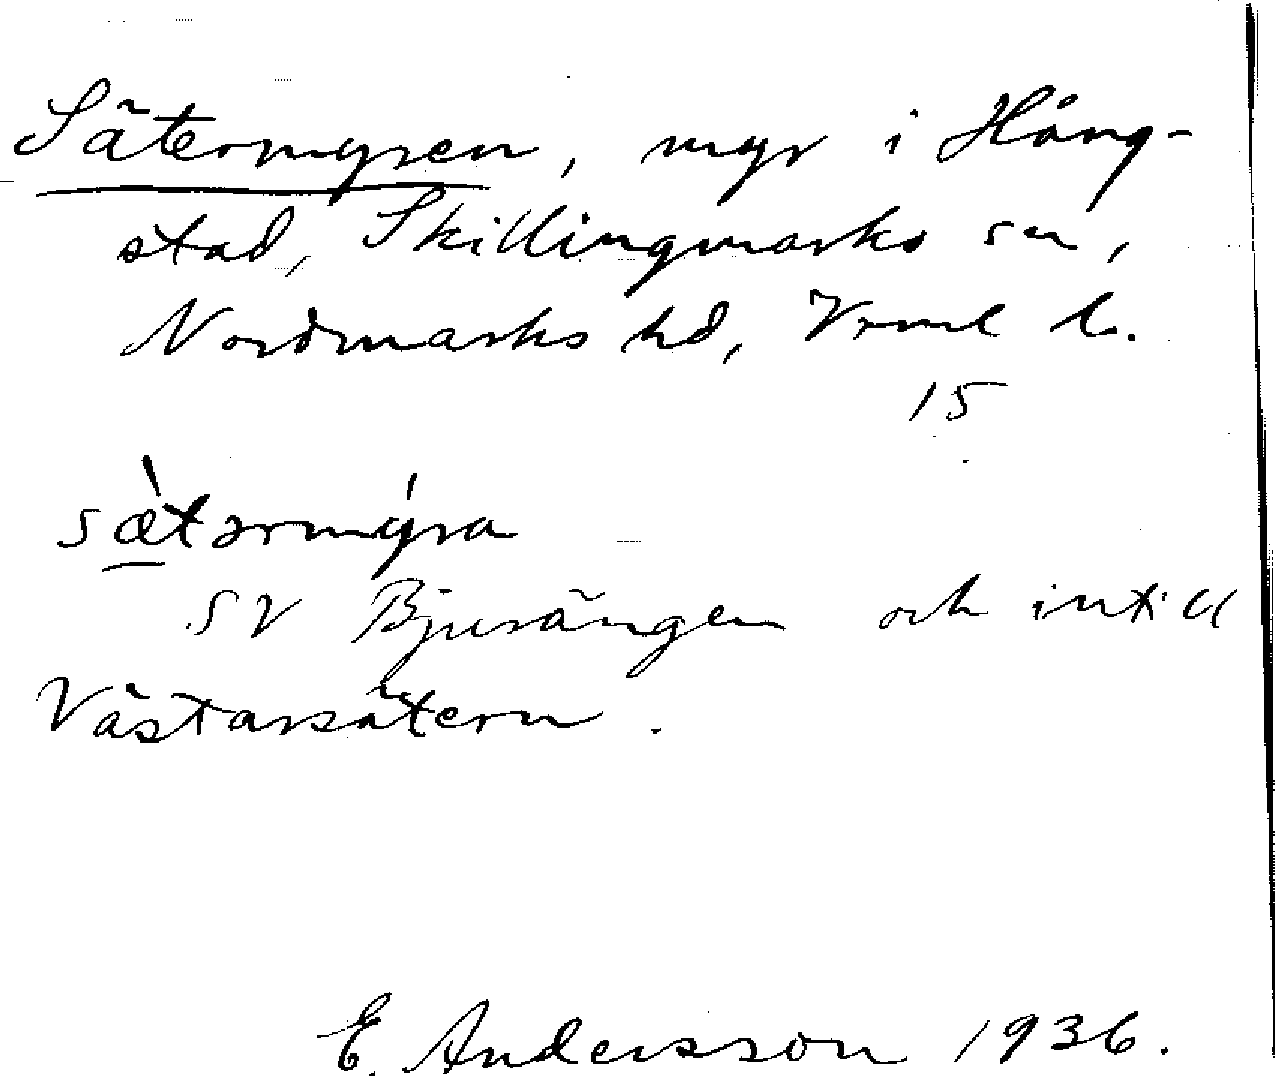 Sätermyren, myr i Hång-
stad, Skillingmarks sn,
Nordmarks hd, Vrml l.
15
sǽtərmýra
SV Bjurängen och intill
Västarsätern.
E. Andersson 1936.